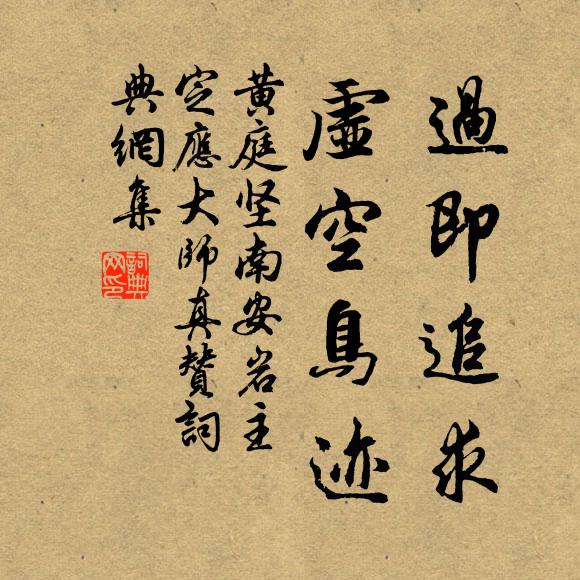 過即追求
虛空鳥迹
黄庭坚南安岩主
定應大師真贊詞
典網集
詞典網印